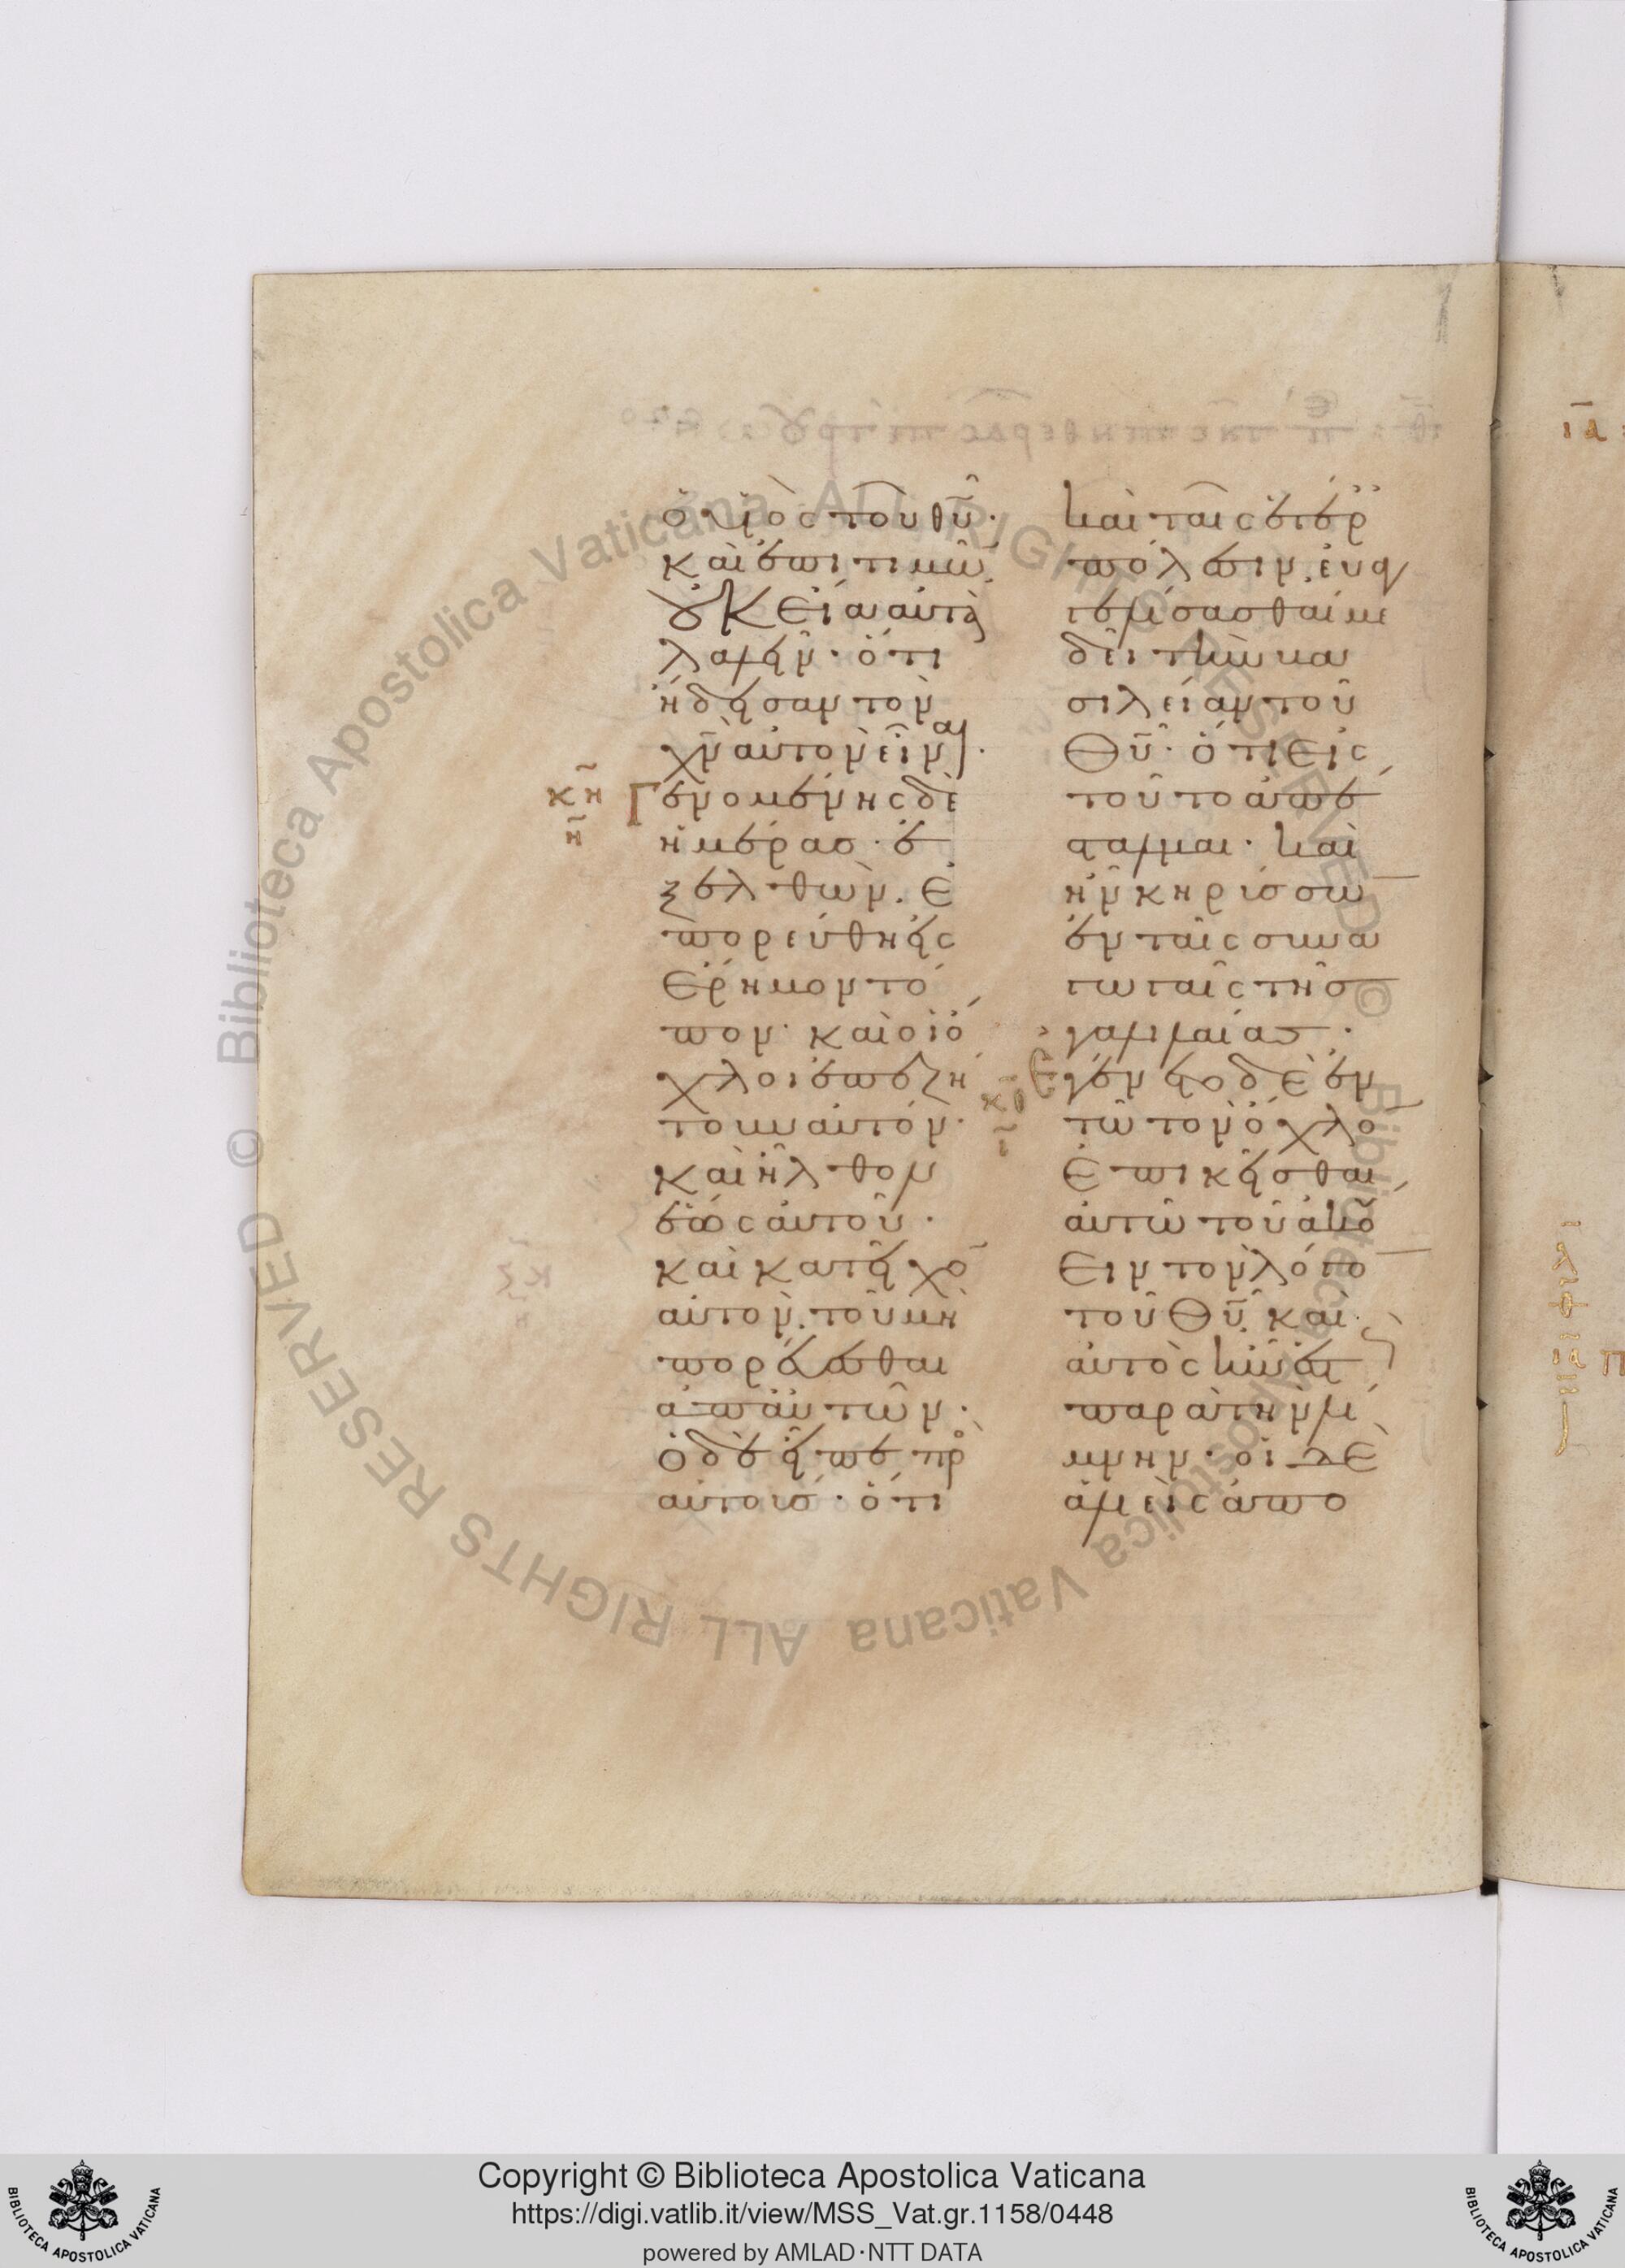 ὁ υἱὸς τοῦ θῦ·
καὶ ἐπιτιμῶ
οὐκ εἴα αὐτὰ
λαλεῖν· ὅτι
ἤδεισαν τὸν
χν αὐτὸν εἶναι·
κη Γενομένης δὲ
η ἡμέρασ· ἐ
ξελθὼν. ἐ
πορεύθη εἰς
ἔρημον τό
πον· καὶ οἱ ὄ
χλοι ἐπεζή
τουν αὐτόν·
καὶ ἦλθον
ἕως αὐτοῦ·
καὶ κατεῖχο
αὐτὸν. τοῦ μὴ
πορεύεσθαι
ἀπ αὐτῶν·
ὁ δὲ εἶπε πρ
αὐτοισ· ὅτι
καὶ ταῖς ἑτέρ
πόλεσιν. εὐαγ
γελίσασθαί με
δεῖ τὴν βα
σιλείαν τοῦ
Θῦ· ὅτι εἰς
τοῦτο ἀπέ
σταλμαι· καὶ
ἦν κηρύσσω
ἐν ταῖς συνα
γωγαῖς τῆσ
γαλιλαίασ·
κθ Ἐγένετο δὲ ἐν
ι τῶ τὸν ὄχλο
ἐπικεῖσθαι
αὐτῶ τοῦ ἀκού
ειν τὸν λόγο
τοῦ Θῦ. καὶ
αὐτὸς ἦν ἑστ
παρὰ τὴν λί
μνην· οἱ δὲ
ἁλιεῖς ἀπο
ια
Copyright © Biblioteca Apostolica Vaticana
https://digi.vatlib.it/view/MSS_Vat.gr.1158/0448
powered by AMLAD·NTT DATA
BIBLIOTECA APOSTOLICA VATICANA
BIBLIOTECA APOSTOLICA VATICANA
© Biblioteca Apostolica Vaticana ALL RIGHTS RESERVED © Biblioteca Apostolica Vaticana ALL RIGHTS RESERVED